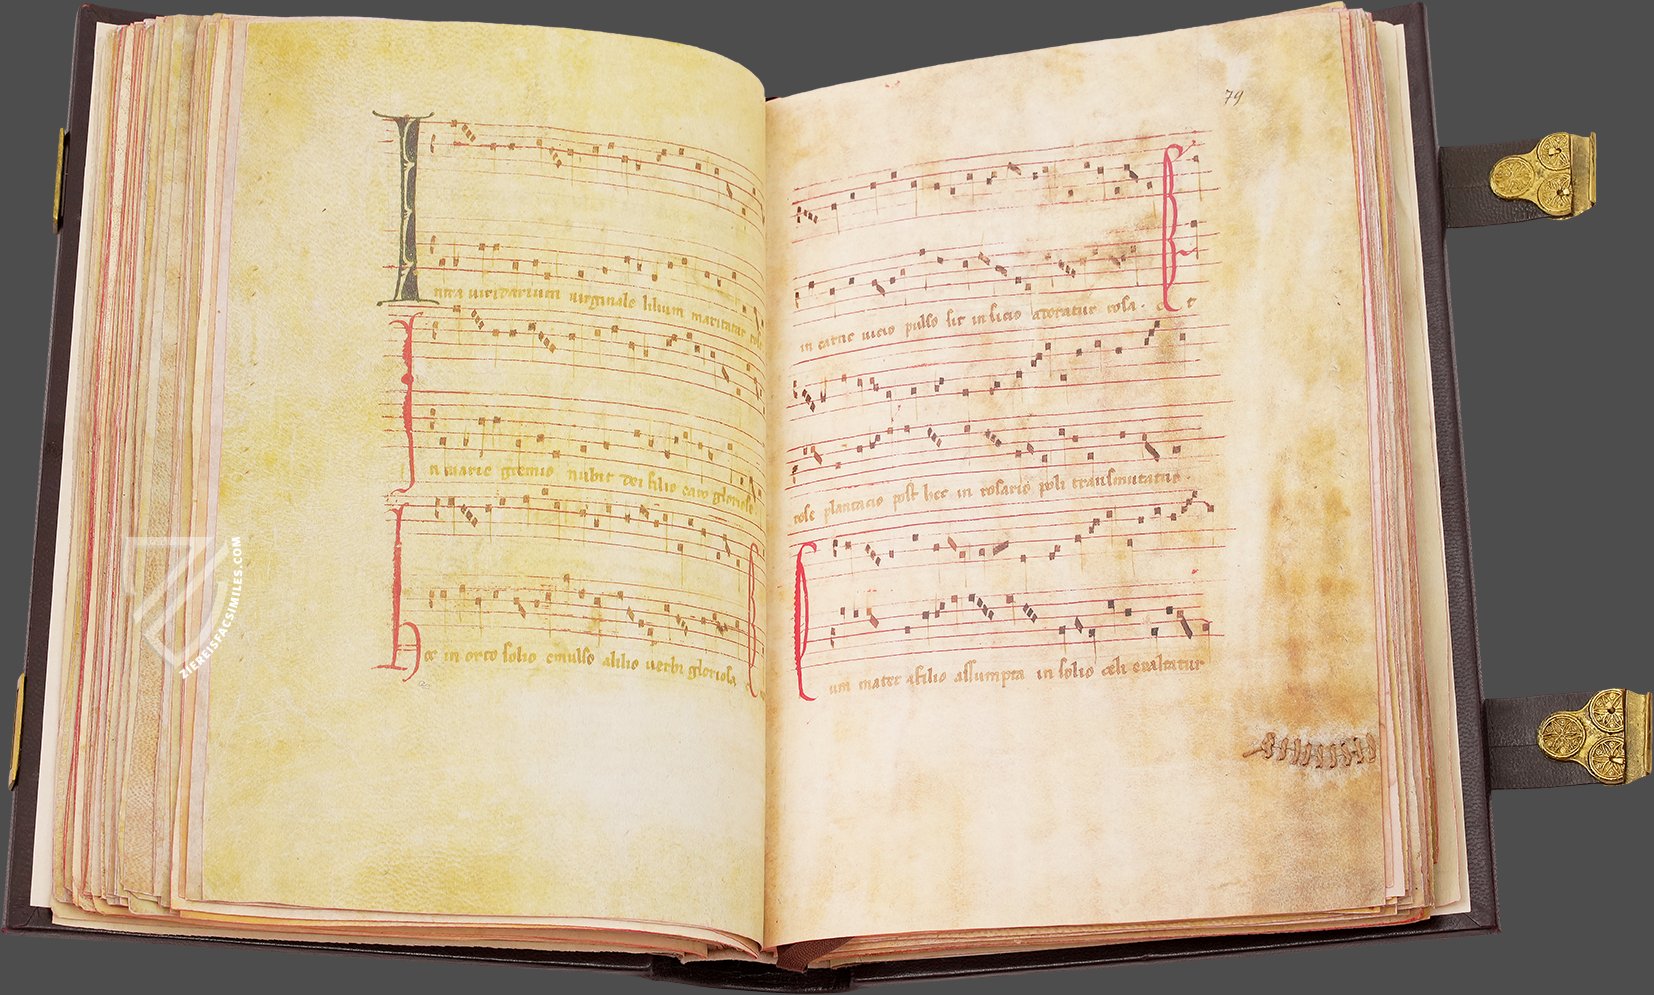 Intra viridarium virginale lilium maritatur rose
In marie gremio nubit dei filio caro gloriose
hec in orto solio emulso alilio verbi gloriosa
79
in carne vicio pulso sit inlicio adoratur rosa. Et
rose plantacio post hec in rosario poli transmutatur.
Cum mater afilio assumpta in solio celi exaltatur
ZIEREISFACSIMILES.COM